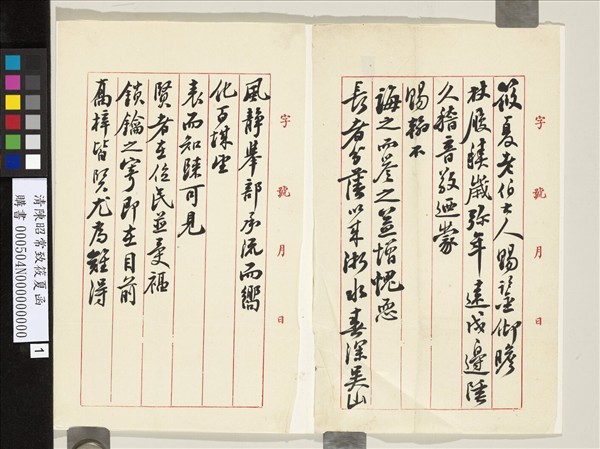 筱夏老伯大人賜鑒仰瞻
杖履睽歲彌年遠戍邊陲
久稽音敬迺蒙
賜翰不
誨之而崇之益增愧恧
長者分藩以來浙水春深吳山
風靜舉部承流而嚮
化可謀坐
表而知踈可見
賢者在位民並受福
鎖鑰之寄即在目前
髙梓皆賢尤為難得
字 號 月 日
字 號 月 日
清陳昭常致筱夏函
購書 000504N000000000
1